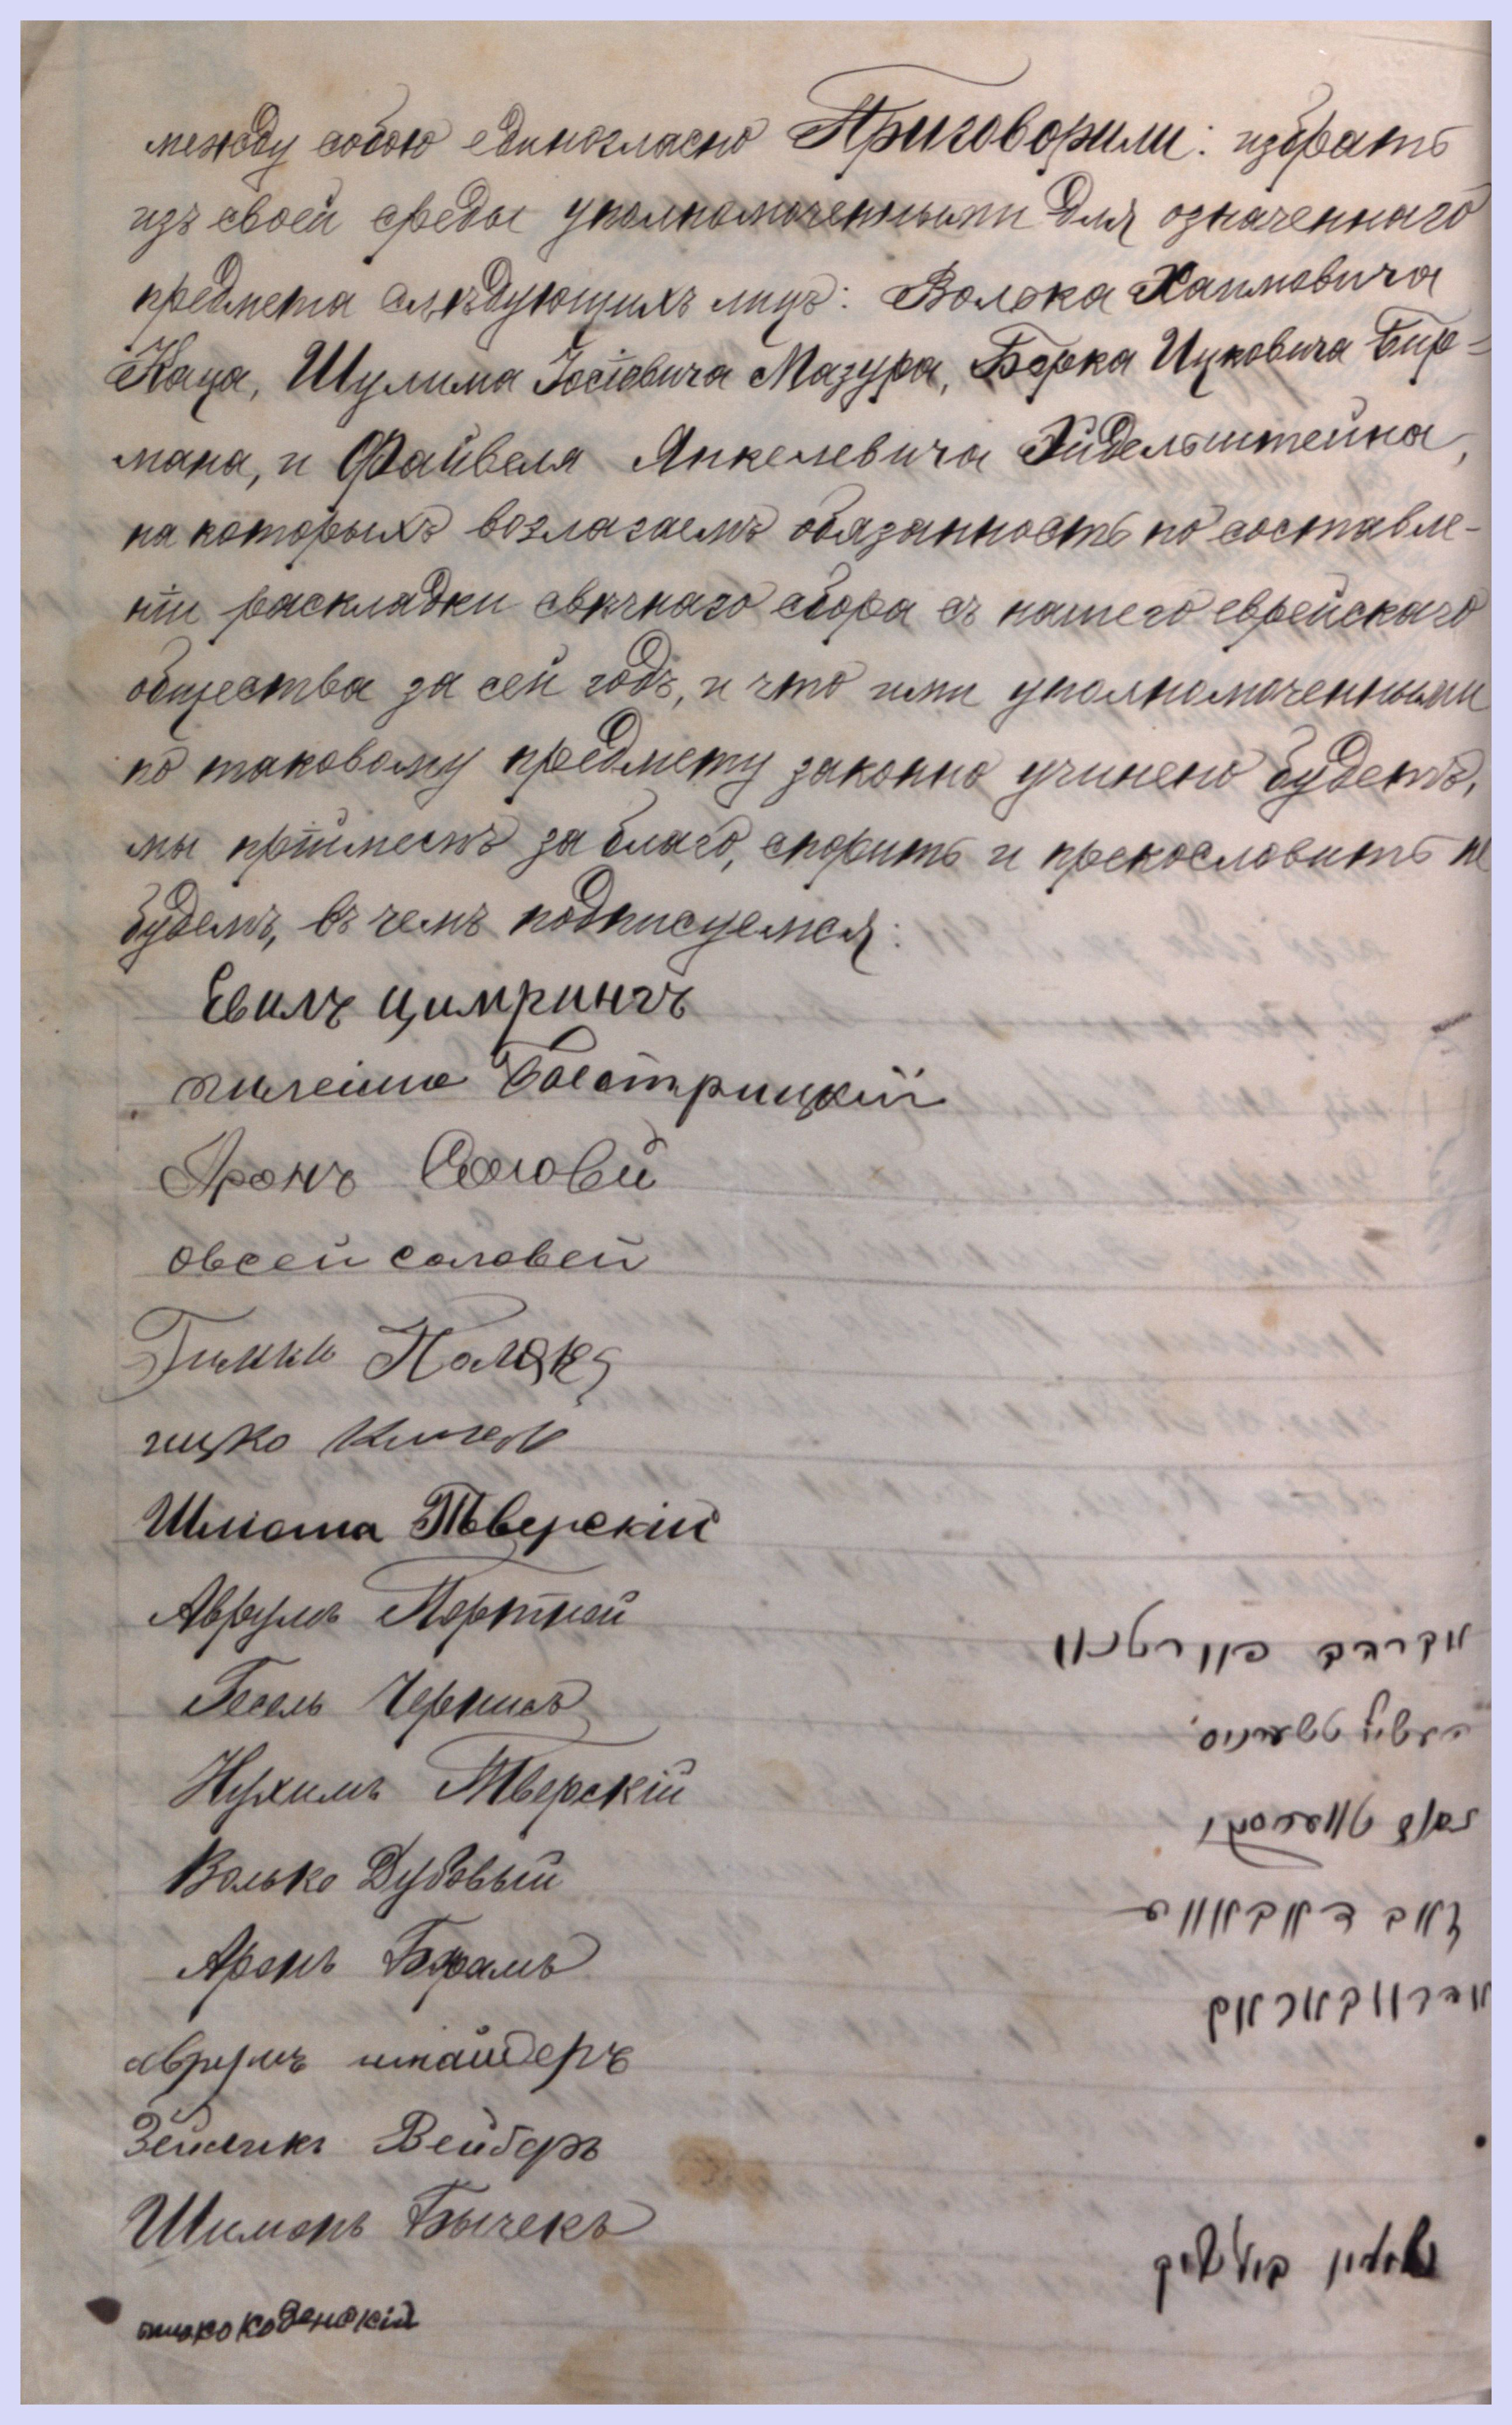 между собою единогласно Приговорили: избрать
изъ своей среды уполномоченными для означеннаго
предмета слѣдующихъ лицъ: Волька Хаимовича
Каца, Шулима Іосіовича Мазура, Берка Ицковича Бир=
мана, и Файвеля Янкелевича Эйдельштейна,
на которыхъ возлагаемъ обязанность по составле-
ніи раскладки свѣчнаго сбора съ нашего еврейскаго
общества за сей годъ, и что ими уполномоченными
по таковому предмету законно учинено будетъ,
мы пріймемъ за благо, спорить и прекословить не
будемъ, въ чемъ подписуемся:
Евилъ Цимрингъ
Аронъ
овсей соловей
Полякъ
ицко
Шлиома Тверскій
Аврумъ Портной אברהם פורטנאי
Гесель Чернисъ טשערניס
Нухимъ Тверскій טווערסקי
Волько Дубовый זאב דאבאווע
Аронъ Барамъ
аврумъ шнайдеръ
Зейликъ Вейберъ
Шимонъ Бычекъ שימון ביטשיק
коденскій